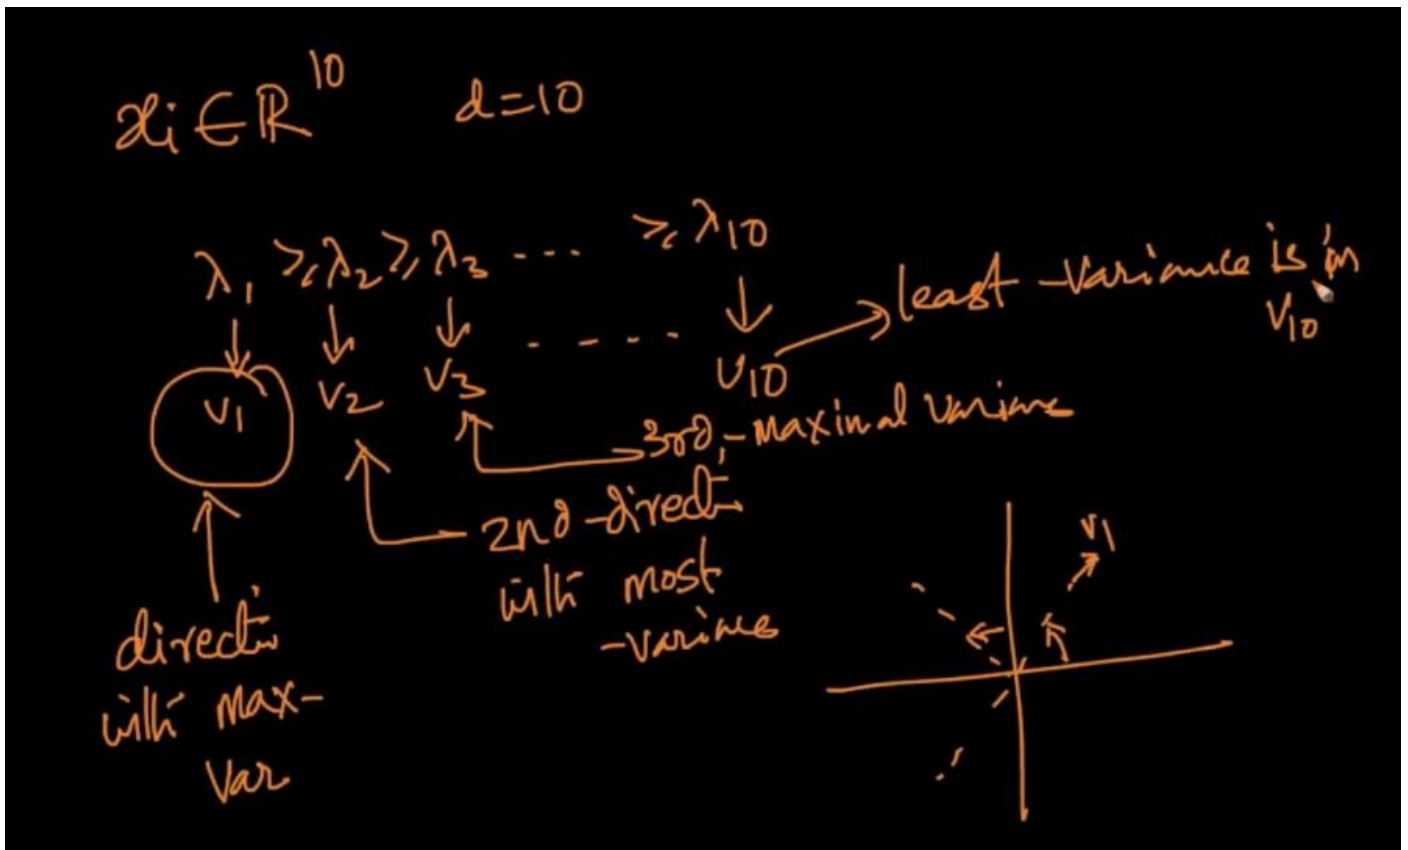 xi ∈ ℝ¹⁰ d=10
λ₁ ≥ λ₂ ≥ λ₃ ---- ≥ λ₁₀
v₁ v₂ v₃ - - - - v₁₀
least-variance is in
v₁₀
3rd-maximal variance
2nd-directn
with most
-variance
directn
with max-
var
v₁